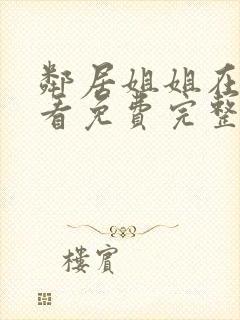 鄰居姐姐在
看免費完整
樓賓